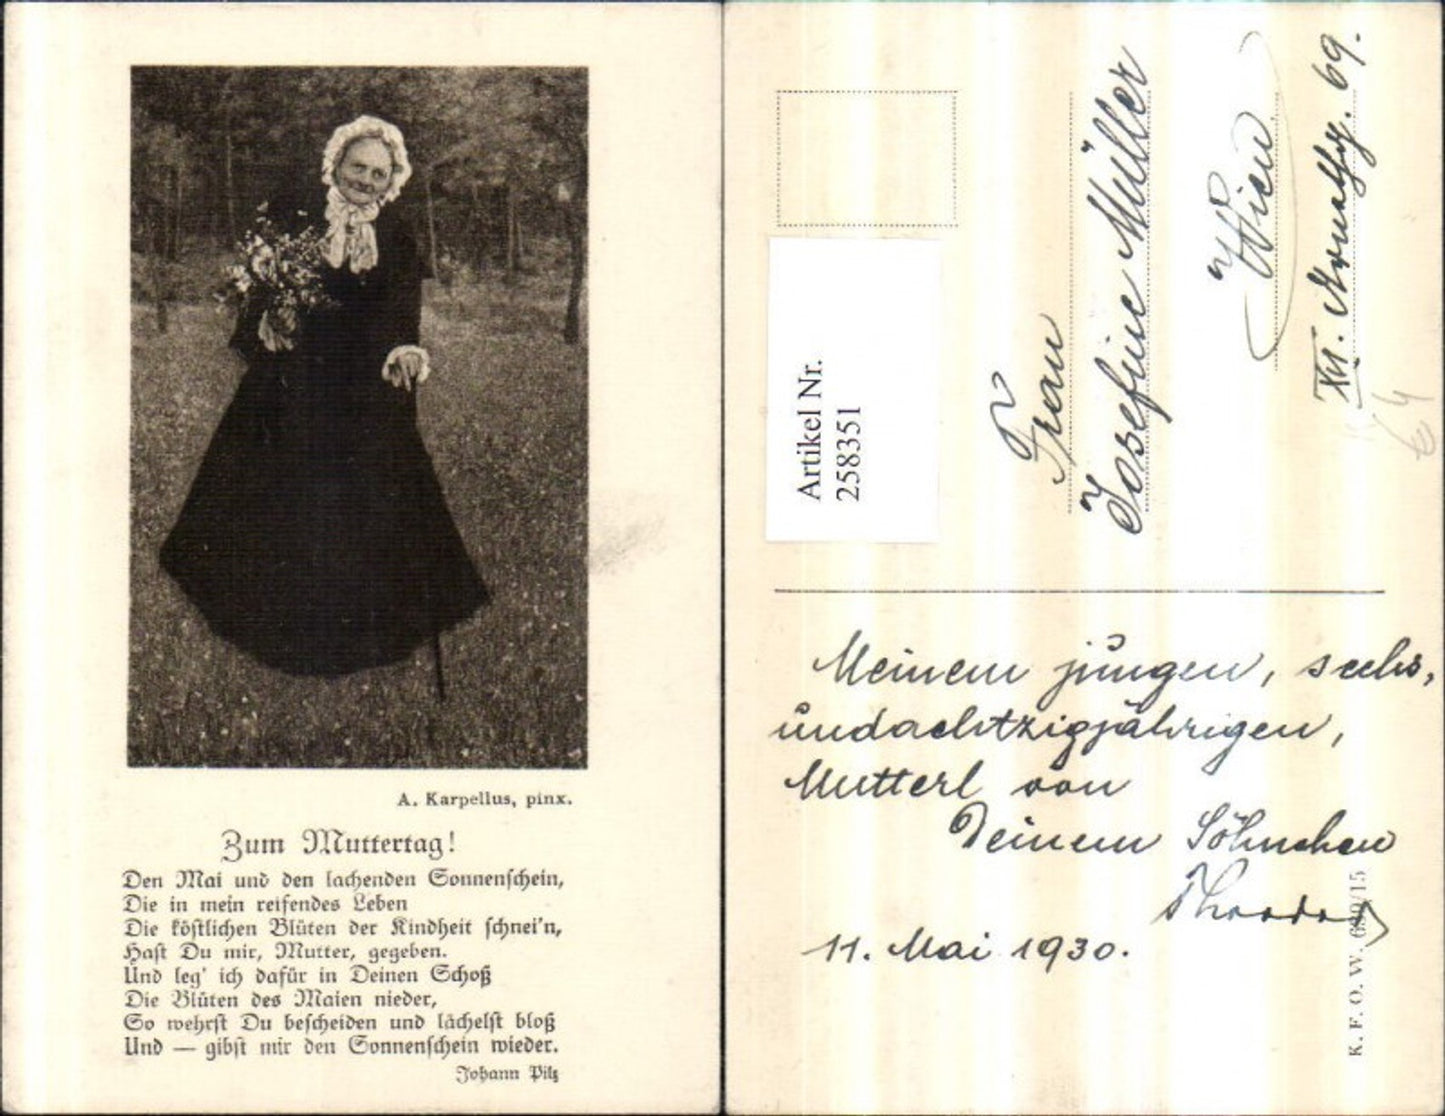 A. Karpellus, pinx.
Zum Muttertag!
Den Mai und den lachenden Sonnenschein,
Die in mein reifendes Leben
Die köstlichen Blüten der Kindheit schnei'n,
Hast Du mir, Mutter, gegeben.
Und leg' ich dafür in Deinen Schoß
Die Blüten des Maien nieder,
So wehrst Du bescheiden und lächelst bloß
Und — gibst mir den Sonnenschein wieder.
Johann Pilz
Artikel Nr.
258351
Frau
Josefine Müller
Wien
XII. 69.
Meinem jungen, sechs,
undachtzigjährigen,
Mutterl von
Deinem Söhnchen
11. Mai 1930.
K. F. O. W. /15